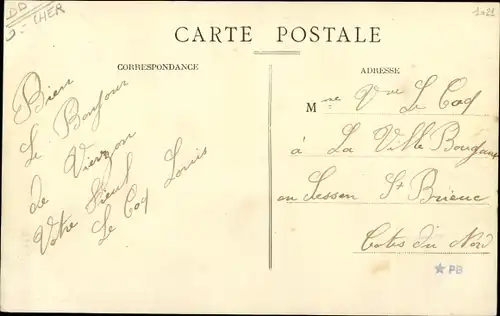 DD
- CHER
1021
CARTE POSTALE
CORRESPONDANCE
Bien
Le Bonjour
de Vierzon
Votre
Le Coq Louis
ADRESSE
Mme Vve Le Coq
à La Ville
en St Brieuc
Cotes du Nord
★PB